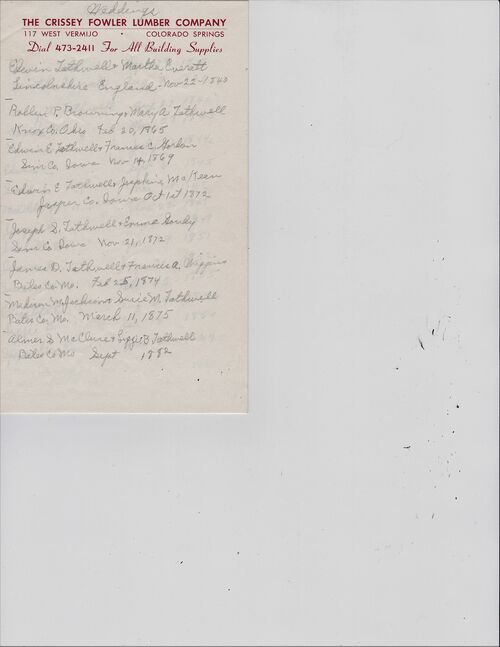 Weddings
THE CRISSEY FOWLER LUMBER COMPANY
117 WEST VERMIJO • COLORADO SPRINGS
Dial 473-2411 For All Building Supplies
Edwin Tathwell & Martha Everett
Lincolnshire England - Nov 22 - 1843
Rollin P. Browning & Mary A. Tathwell
Knox Co. Ohio Feb 20, 1865
Edwin E Tathwell & Frances C.
Sim Co, Iowa Nov 14, 1869
Edwin E Tathwell & Josephine McKeen
Jasper Co. Iowa Oct 1st 1872
Joseph S. Tathwell & Emma Goudy
Sim Co Iowa Nov 21, 1872
James D. Tathwell & Francis A. Wiggins
Bates Co. Mo. Feb 25, 1874
M. Jackson & Susie M. Tathwell
Bates Co. Mo. March 11, 1875
Almer S McClure & Lizzie B Tathwell
Bates Co Mo Sept 1882